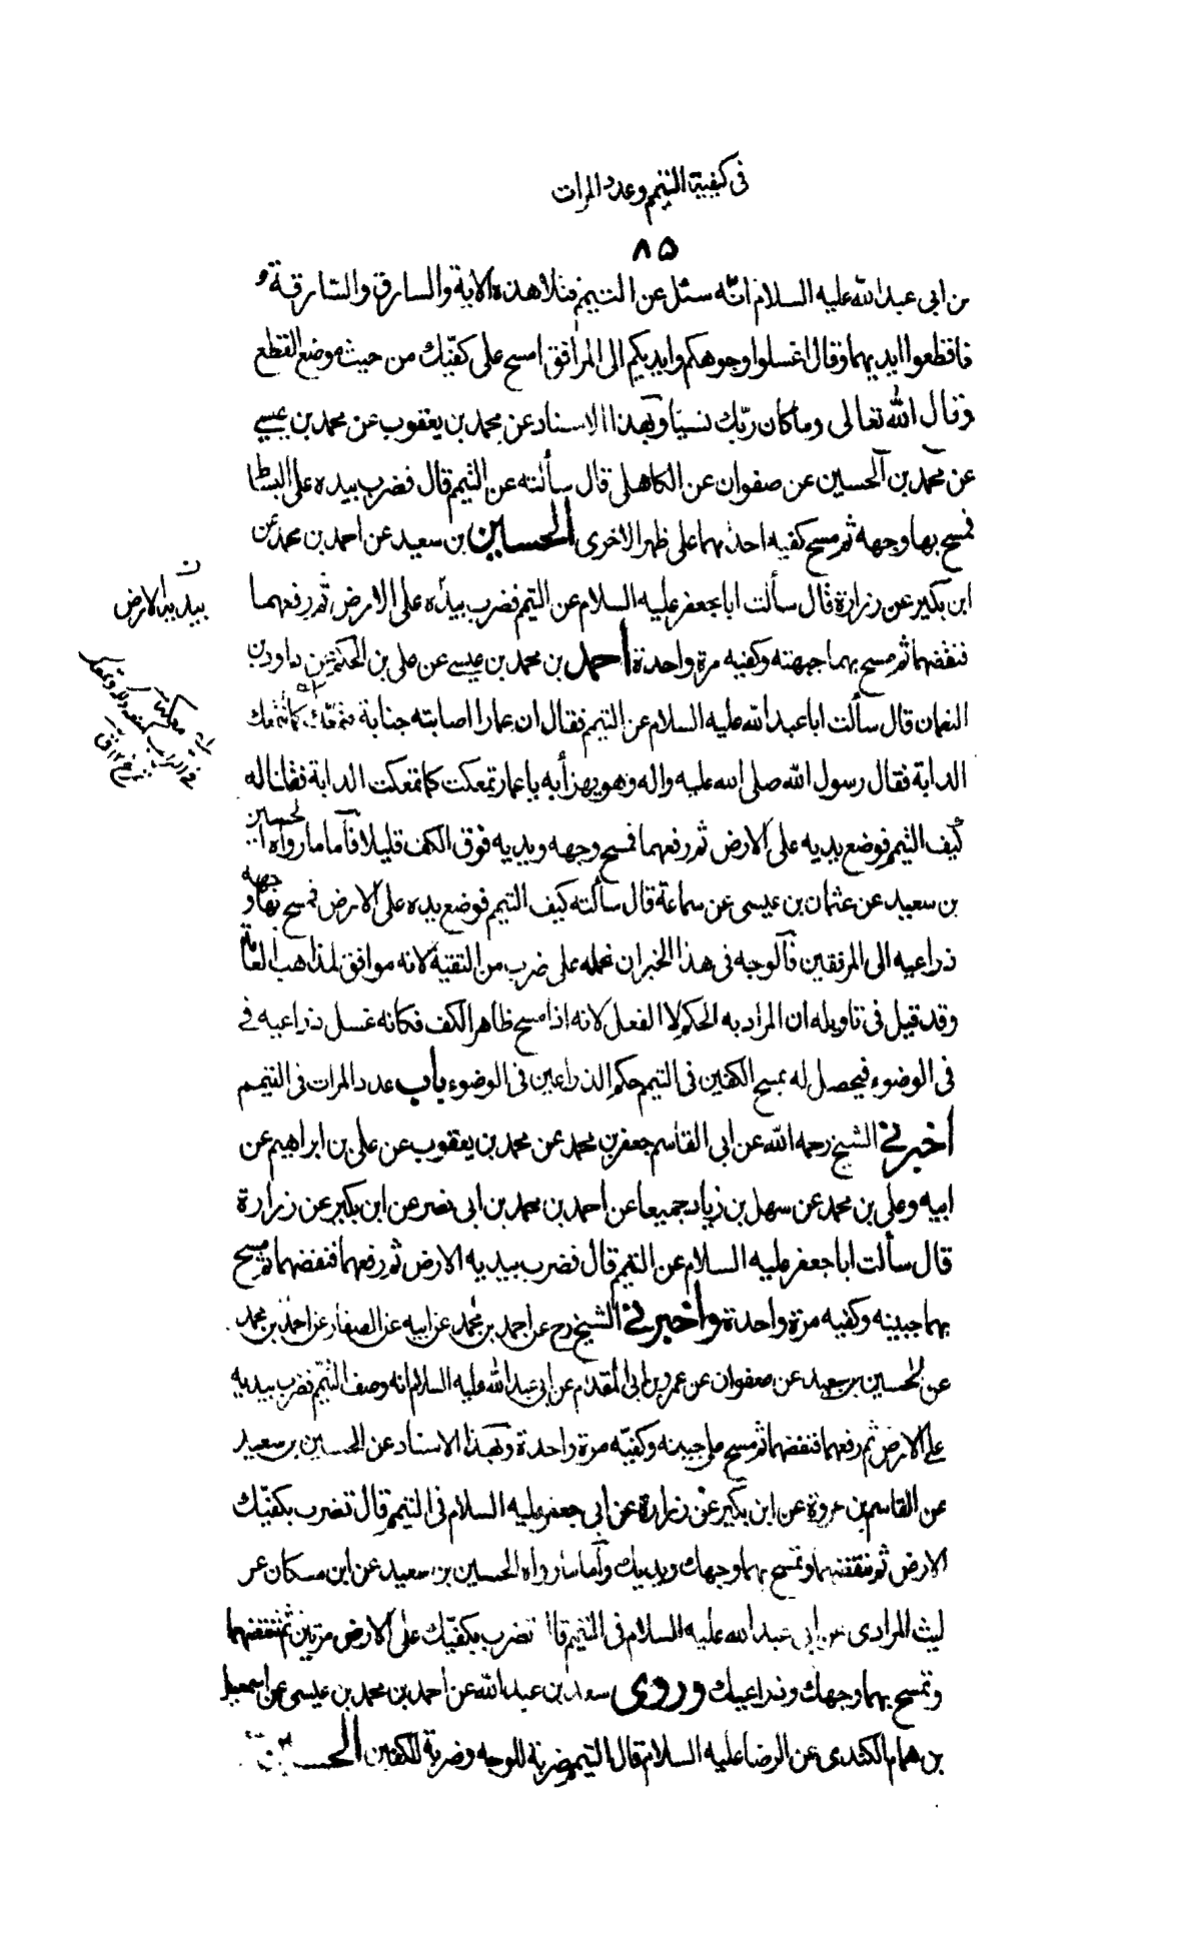 فى كيفية التيمم وعدد المرات
٨٥
عن ابى عبد الله عليه السلام انّه سئل عن التيمم فتلا هذه الاية والسارق والسّارقة
فاقطعوا ايديهما وقال اغسلوا وجوهكم وايديكم الى المرافق امسح على كفّيك من حيث موضع القطع
وقال الله تعالى وما كان ربّك نسيّا وبهذا الاسناد عن محمد بن يعقوب عن محمد بن يحيى
عن محمد بن الحسين عن صفوان عن الكاهلى قال سألته عن التيمم قال فضرب بيده على البساط
فمسح بها وجهه ثم مسح كفيه احدٰيهما على ظهر الاخرى الحسين بن سعيد عن احمد بن محمد عن
ابن بكير عن زرارة قال سألت ابا جعفر عليه السلام عن التيمم فضرب بيده على الارض ثم رفعهما
فنفضهما ثم مسح بهما جبهته وكفيه مرة واحدة احمد بن محمد بن عيسى عن على بن الحكم عن داود بن
النعمان قال سألت ابا عبد الله عليه السلام عن التيمم فقال ان عمارا اصابته جنابة فتمعّك كما تتمعك
الدابة فقال رسول الله صلى الله عليه واله وهو يهزأ به يا عمار تمعكت كما تمعكت الدابة فقلنا له
كيف التيمم فوضع يديه على الارض ثم رفعهما فمسح وجهه ويديه فوق الكف قليلا فأما ما رواه الحسين
بن سعيد عن عثمان بن عيسى عن سماعة قال سألته كيف التيمم فوضع يده على الارض فمسح بها وجهه
ذراعيه الى المرفقين فالوجه فى هذا الخبر ان نحمله على ضرب من التقية لانه موافق لمذاهب العامّة
وقد قيل فى تاويله ان المراد به الحكم لا الفعل لانه اذا مسح ظاهر الكف فكانه غسل ذراعيه فى
فى الوضوء فيحصل له بمسح الكفين فى التيمم حكم الذراعين فى الوضوء باب عدد المرات فى التيمم
اخبرنى الشيخ رحمه الله عن ابى القاسم جعفر بن محمد عن محمد بن يعقوب عن على بن ابراهيم عن
ابيه وعلى بن محمد عن سهل بن زياد جميعا عن احمد بن محمد بن ابى نصر عن ابن بكير عن زرارة
قال سألت ابا جعفر عليه السلام عن التيمم قال فضرب بيديه الارض ثم رفعهما فنفضهما ثم مسح
بهما جبينه وكفيه مرة واحدة واخبرنى الشيخ رح عن احمد بن محمد عن ابيه عن الصفار عن احمد بن محمد
عن الحسين بن سعيد عن صفوان عن عمرو بن ابى المقدام عن ابى عبد الله عليه السلام انه وصف التيمم فضرب بيديه
على الارض ثم رفعهما فنفضهما ثم مسح على جبينه وكفيّه مرة واحدة وبهذا الاسناد عن الحسين بن سعيد
عن القاسم بن عروة عن ابن بكير عن زرارة عن ابى جعفر عليه السلام فى التيمم قال تضرب بكفيّك
الارض ثم تنفضهما وتمسح بهما وجهك ويديك وأما ما رواه الحسين بن سعيد عن ابن مسكان عن
ليث المرادى عن ابى عبد الله عليه السلام فى التيمم قال تضرب بكفيّك على الارض مرتين ثم تنفضهما
وتمسح بهما وجهك وذراعيك وروى سعد بن عبد الله عن احمد بن محمد بن عيسى عن اسمعيل
بن همام الكندى عن الرضا عليه السلام قال التيمم ضربة للوجه وضربة للكفين الحسين بن
بيديه الارض